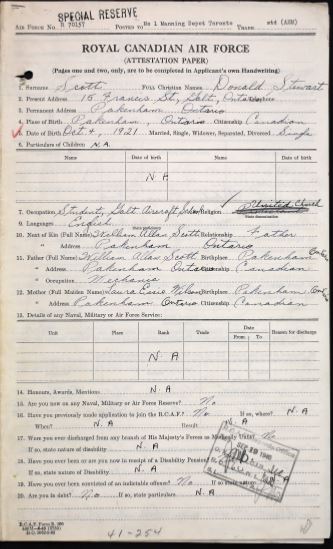 SPECIAL RESERVE
AIR FORCE No. R 70157 POSTED TO No 1 Manning Depot Toronto TRADE std (ASM)
ROYAL CANADIAN AIR FORCE
(ATTESTATION PAPER)
(Pages one and two, only, are to be completed in Applicant's own Handwriting)
1. Surname Scott Full Christian Names Donald Stewart
2. Present Address 15 Francis St, Galt, Ontario Telephone
3. Permanent Address Pakenham, Ontario
4. Place of Birth Pakenham, Ontario Citizenship Canadian
5. Date of Birth Oct 4, 1921 Married, Single, Widower, Separated, Divorced Single
6. Particulars of Children N.A.
Name Date of birth Name Date of birth
N A
7. Occupation Student, Galt Aircraft School Religion United Church
8. Languages English
10. Next of Kin (Full Name) William Allan Scott Relationship Father
Address Pakenham, Ontario
11. Father (Full Name) William Allan Scott Birthplace Pakenham Ontario
" Address Pakenham Ontario Citizenship Canadian
" Occupation Mechanic
12. Mother (Full Maiden Name) Laura Wilson Birthplace Pakenham, Ontario
" Address Pakenham Ontario Citizenship Canadian
13. Details of any Naval, Military or Air Force Service:
Unit Place Rank Trade Date Reason for discharge
From To
N A
14. Honours, Awards, Mentions N. A
15. Are you now on any Naval, Military or Air Force Reserve? No
16. Have you previously made application to join the R.C.A.F.? No If so, where? N. A
When? N. A Result N. A
17. Were you ever discharged from any branch of His Majesty's Forces as Medically Unfit? No
If so, state nature of disability N. A
18. Have you ever been or are you now in receipt of a Disability Pension?
If so, State nature of Disability N. A
19. Have you ever been convicted of an indictable offence? No If so, state nature
20. Are you in debt? No If so, state particulars N. A
41-254